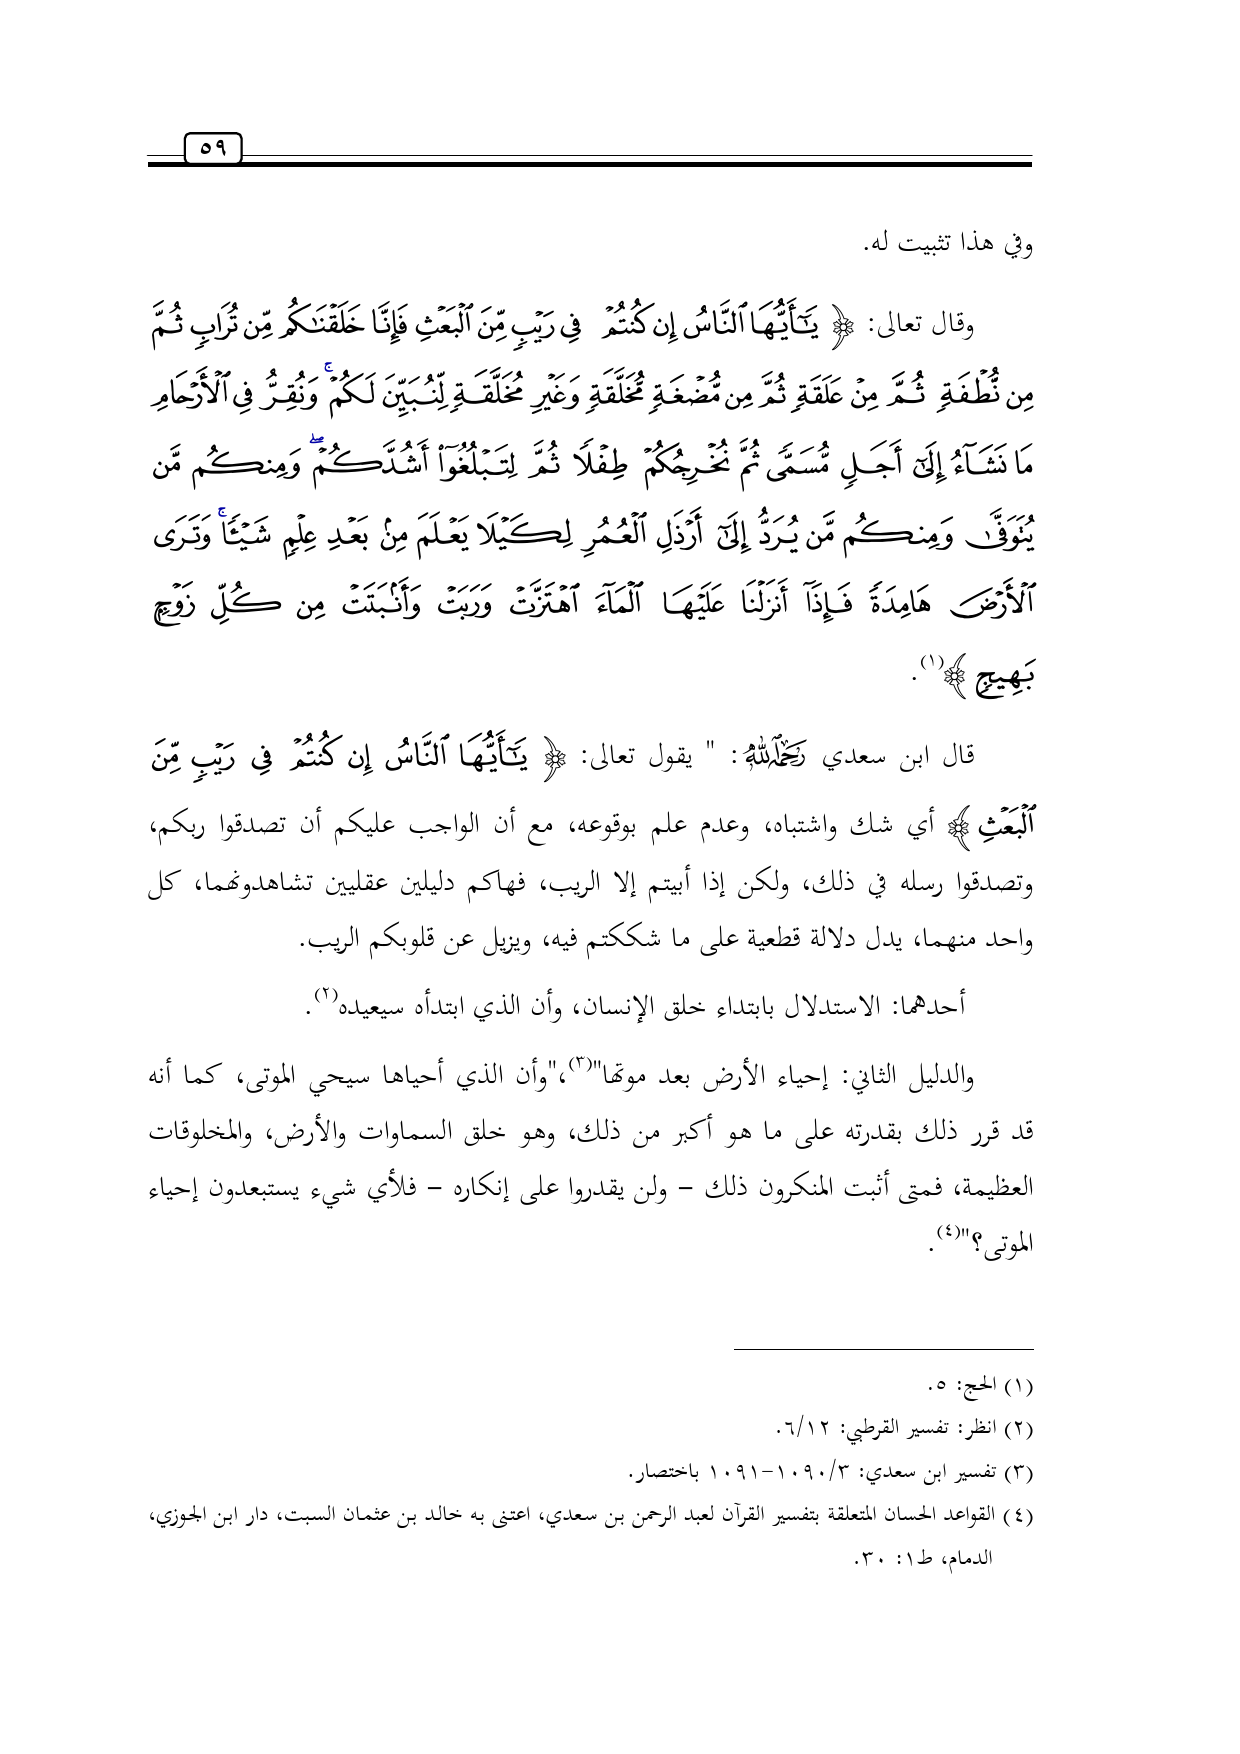 ٥٩
وفي هذا تثبيت له.
وقال تعالى: ﴿ يَٰٓأَيُّهَا ٱلنَّاسُ إِن كُنتُمۡ فِي رَيۡبٖ مِّنَ ٱلۡبَعۡثِ فَإِنَّا خَلَقۡنَٰكُم مِّن تُرَابٖ ثُمَّ
مِن نُّطۡفَةٖ ثُمَّ مِنۡ عَلَقَةٖ ثُمَّ مِن مُّضۡغَةٖ مُّخَلَّقَةٖ وَغَيۡرِ مُخَلَّقَةٖ لِّنُبَيِّنَ لَكُمۡۚ وَنُقِرُّ فِي ٱلۡأَرۡحَامِ
مَا نَشَآءُ إِلَىٰٓ أَجَلٖ مُّسَمّٗى ثُمَّ نُخۡرِجُكُمۡ طِفۡلٗا ثُمَّ لِتَبۡلُغُوٓاْ أَشُدَّكُمۡۖ وَمِنكُم مَّن
يُتَوَفَّىٰ وَمِنكُم مَّن يُرَدُّ إِلَىٰٓ أَرۡذَلِ ٱلۡعُمُرِ لِكَيۡلَا يَعۡلَمَ مِنۢ بَعۡدِ عِلۡمٖ شَيۡـٔٗاۚ وَتَرَى
ٱلۡأَرۡضَ هَامِدَةٗ فَإِذَآ أَنزَلۡنَا عَلَيۡهَا ٱلۡمَآءَ ٱهۡتَزَّتۡ وَرَبَتۡ وَأَنۢبَتَتۡ مِن كُلِّ زَوۡجِۭ
بَهِيجٖ ﴾(١).
قال ابن سعدي رَحِمَهُ ٱللَّهُ: " يقول تعالى: ﴿ يَٰٓأَيُّهَا ٱلنَّاسُ إِن كُنتُمۡ فِي رَيۡبٖ مِّنَ
ٱلۡبَعۡثِ ﴾ أي شك واشتباه، وعدم علم بوقوعه، مع أن الواجب عليكم أن تصدقوا ربكم،
وتصدقوا رسله في ذلك، ولكن إذا أبيتم إلا الريب، فهاكم دليلين عقليين تشاهدونهما، كل
واحد منهما، يدل دلالة قطعية على ما شككتم فيه، ويزيل عن قلوبكم الريب.
أحدهما: الاستدلال بابتداء خلق الإنسان، وأن الذي ابتدأه سيعيده(٢).
والدليل الثاني: إحياء الأرض بعد موتها"(٣)،"وأن الذي أحياها سيحي الموتى، كما أنه
قد قرر ذلك بقدرته على ما هو أكبر من ذلك، وهو خلق السماوات والأرض، والمخلوقات
العظيمة، فمتى أثبت المنكرون ذلك – ولن يقدروا على إنكاره – فلأي شيء يستبعدون إحياء
الموتى؟"(٤).
(١) الحج: ٥.
(٢) انظر: تفسير القرطبي: ٦/١٢.
(٣) تفسير ابن سعدي: ١٠٩٠/٣-١٠٩١ باختصار.
(٤) القواعد الحسان المتعلقة بتفسير القرآن لعبد الرحمن بن سعدي، اعتنى به خالد بن عثمان السبت، دار ابن الجوزي،
الدمام، ط١: ٣٠.